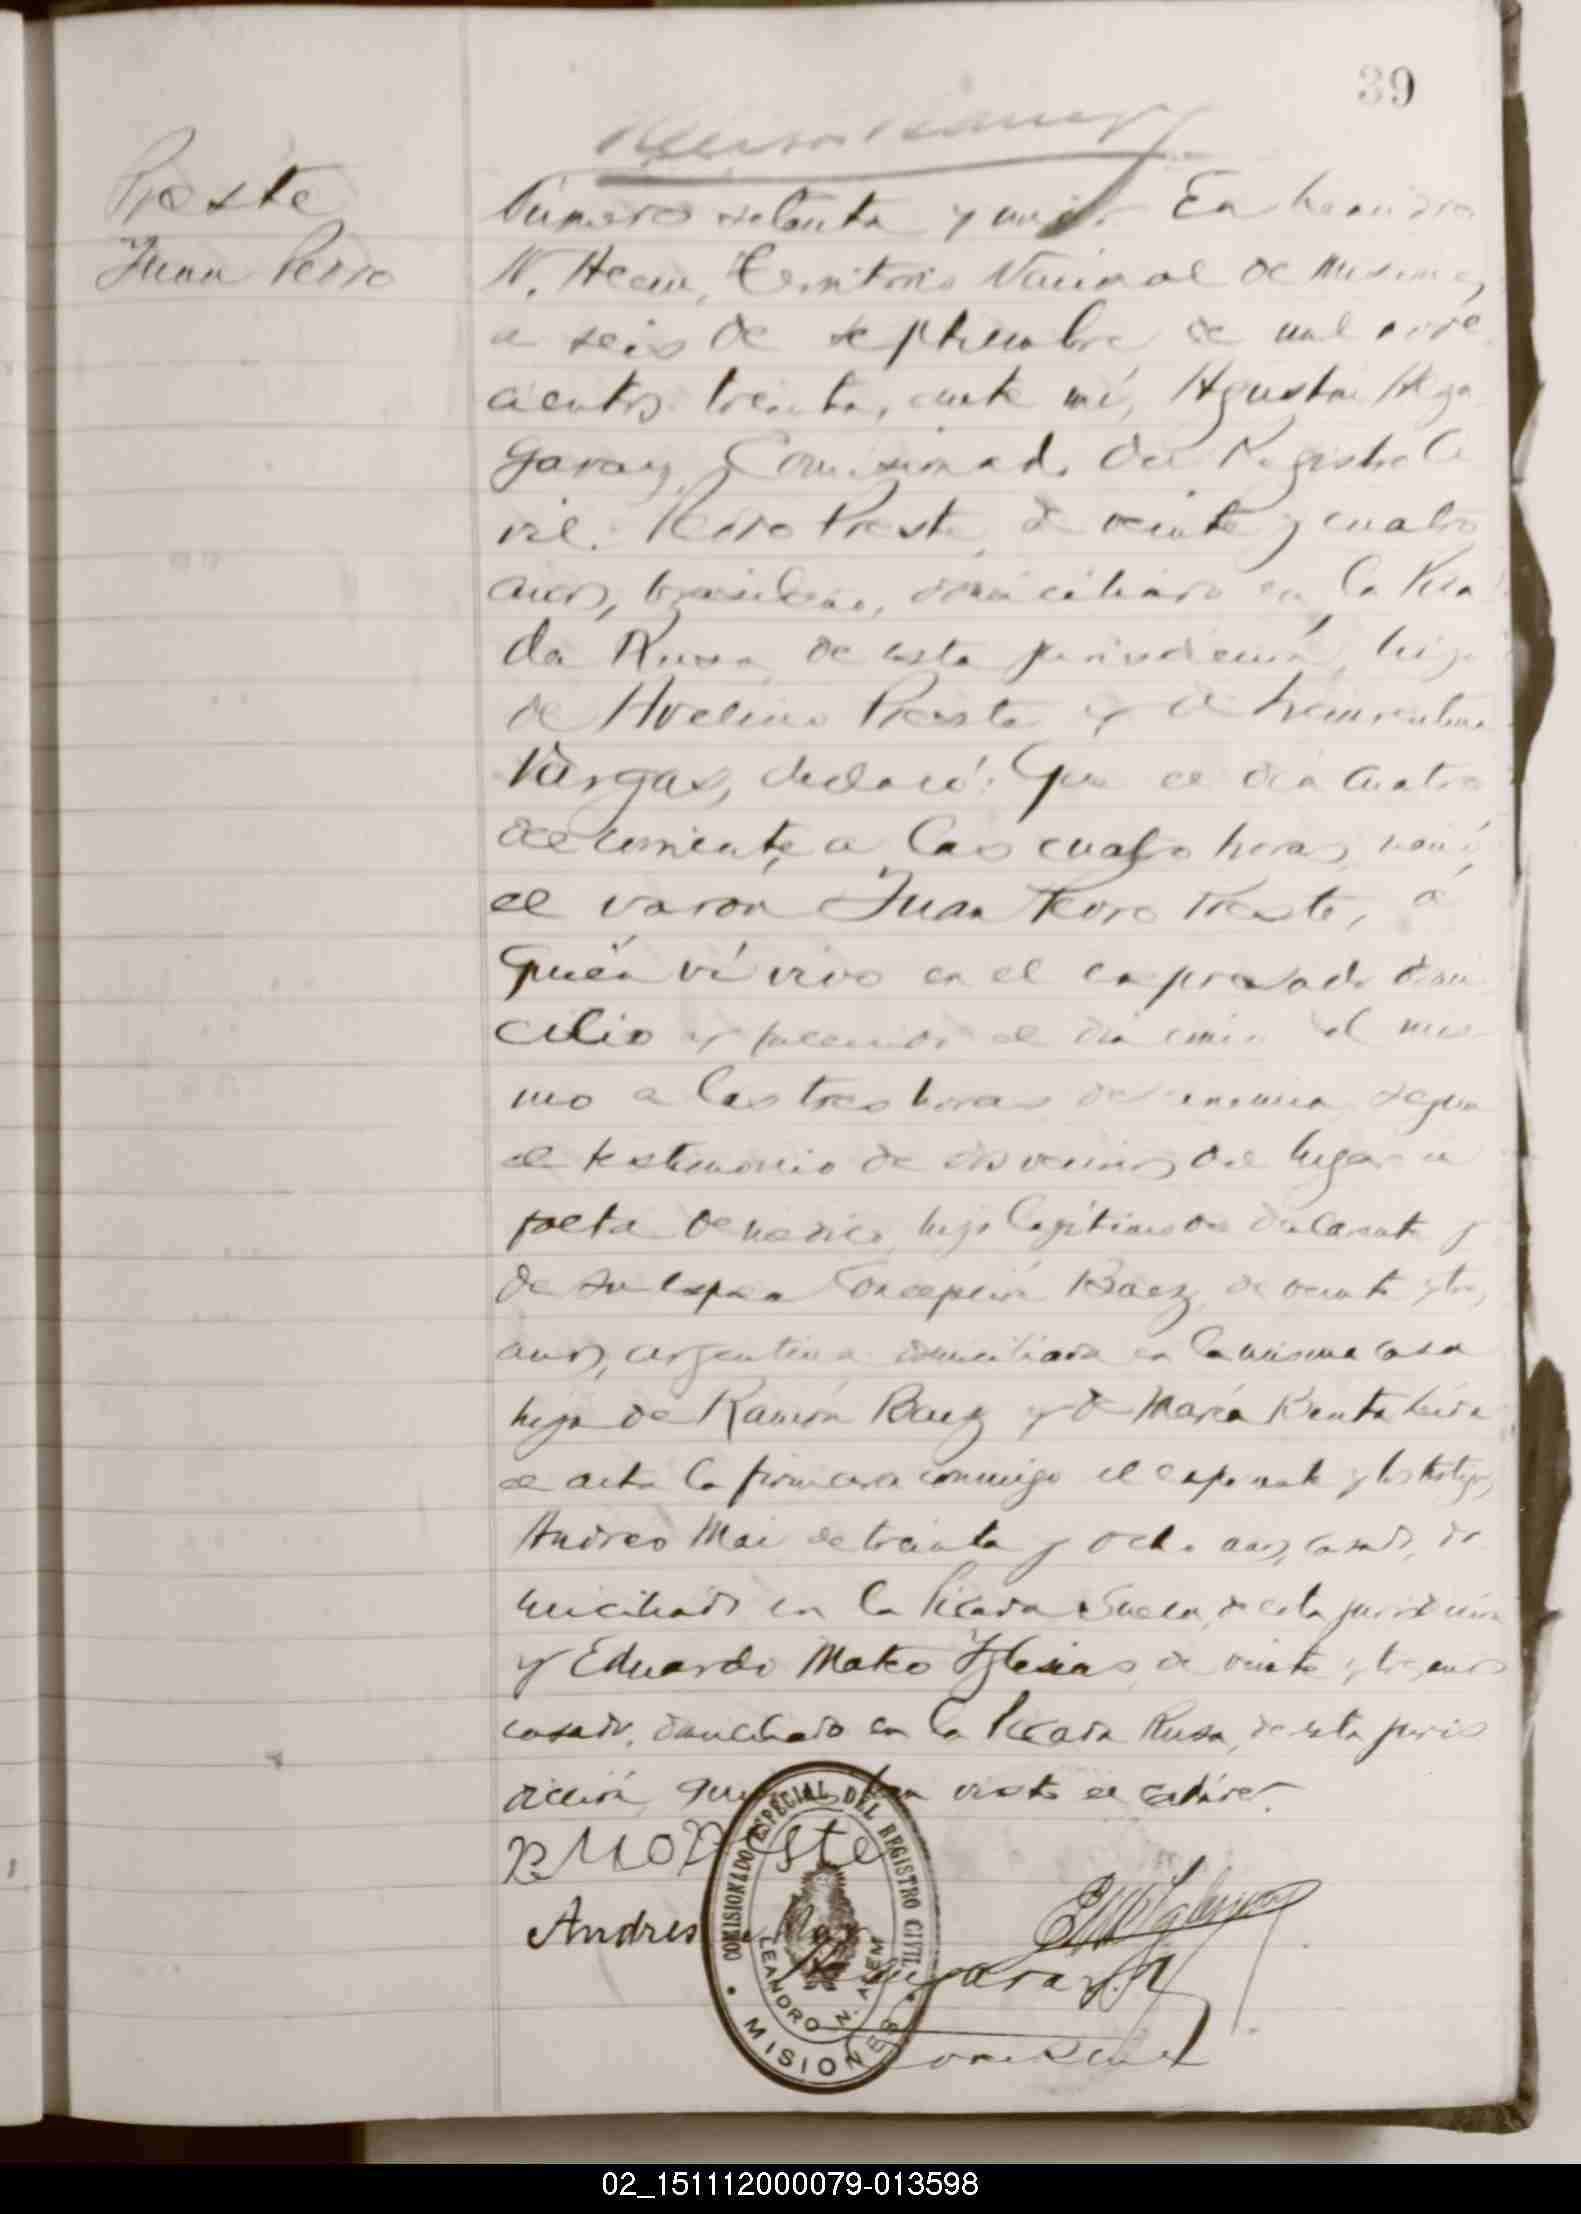 39
Preste
Juan Pedro
Número setenta y En Leandro
N. Alem, Territorio Nacional de Misiones,
a seis de septiembre de mil nove
cientos treinta, ante mí, Agustín
Garay, Comisionado del Registro Ci
vil: Pedro Preste, de veinte y cuatro
años, brasileño, domiciliado en la Pica
da Rusa de esta jurisdicción, hijo
de Avelino Preste y de Laurentina
Vargas, declaró: Que el día cuatro
del corriente a las cuatro horas, nació
el varón Juan Pedro Preste, a
quién ví vivo en el expresado domi
cilio y falleció el día cinco del mis
mo a las tres horas de segun
el testimonio de dos vecinos del lugar a
falta de médico, hijo legítimo del declarante y
de su esposa Concepción Baez, de veinte y tres
años, argentina domiciliada en la misma casa
hija de Ramón Baez y de María Benta Leída
el acta la firmaron conmigo el exponente y los testigos,
Andres Mai de treinta y ocho años, casado, do
miciliado en la Picada Sueca, de esta jurisdicción
y Eduardo Mateo Iglesias, de veinte y tres años
casado, domiciliado en la Picada Rusa, de esta juris
dicción, quienes han visto el cadáver.
Andres
COMISIONADO ESPECIAL DEL REGISTRO CIVIL
LEANDRO N. ALEM
MISIONES
02_151112000079-013598